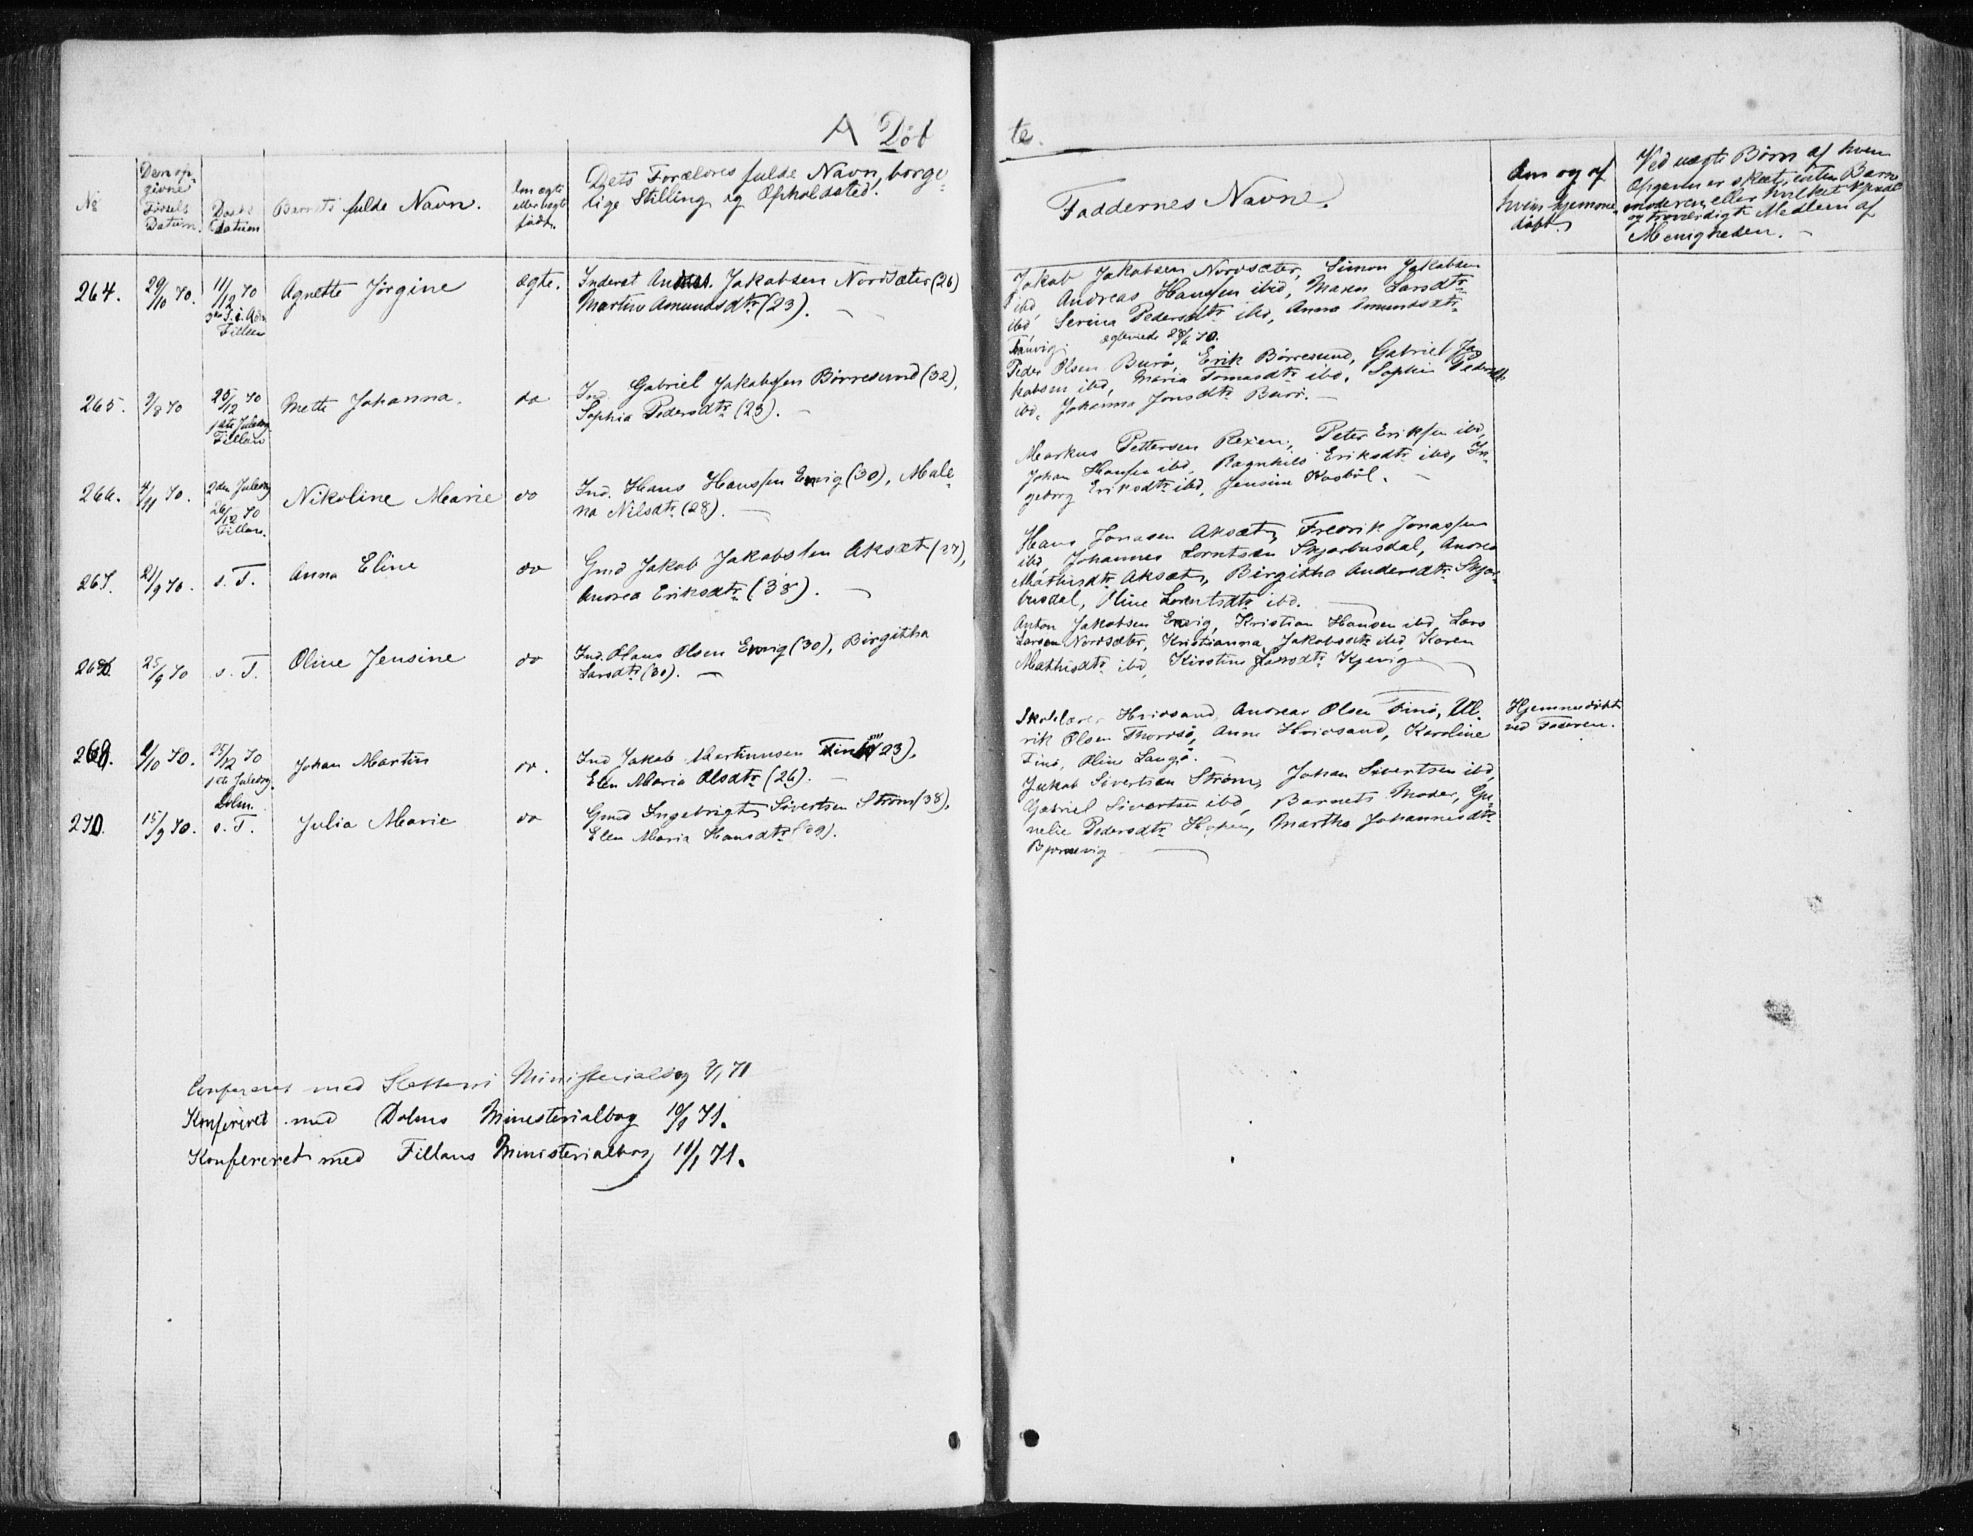 A Døbte.
№
Den op-
givne
Fødsels
Datum.
Daabs
Datum
Barnets fulde Navn.
Om ægte
eller uægte
født.
Dets Forældres fulde Navn, borger-
lige Stilling og Opholdssted.
Faddernes Navne.
Om og af
hvem hjemme-
døbt.
Ved uægte Børn af hvem
Opgaven er skeet, enten Barne-
moderen, eller hvilket
og troværdigt Medlem af
Menigheden. —
264. 29/10 70. 11/12 70 Agnette Jørgine ægte. Inderst Jakobsen Nordsæter (26)
3die S. i Adv. Martine Amundsdtr (23). —
Fillan
Jakob Jakobsen Nordsæter, Simon Jakobsen
ibd, Andreas Hanssen ibid, Maren Larsdtr
ibd, Serina Pedersdtr ibd, Anna Amundsdtr
ægteviede 28/6 70.
265. 9/8 70 25/12 70 Mette Johanna. do Ind. Gabriel Jakobsen Børresund (32),
1ste Juledag Sophia Pedersdtr (23). —
Fillan
Peder Olsen Burø, Erik Børresund, Gabriel Ja-
kobsen ibd, Maria Tomasdtr ibd, Sophie Pedersdtr
ibd, Johanna Jonsdtr Burø. —
266. 4/11 70. 2den Juledag Nikoline Marie do Ind. Hans Hanssen Envig (30), Male-
26/12 70 na Nilsdtr (28). —
Fillan.
Markus Pettersen Rexen, Peter Eriksen ibd,
Johan Hansen ibd, Ragnhild Eriksdtr ibd, In-
geborg Eriksdtr ibd, Jensine Kosbøl. —
267. 21/9 70. s. T. Anna Eline do Gmd Jakob Jakobsen Aksæt (27),
Andrea Eriksdtr (38). —
Hans Jonasen Aksæt, Fredrik Jonassen
ibd, Johannes Lorntsen Skjærbusdal, Andrea
Mathisdtr Aksæt, Birgitha Andersdtr Skjær-
busdal, Oline Lorentsdtr ibd. —
268 25/9 70 s. T. Oline Jensine do Ind. Hans Olsen Envig (30), Birgitha
Larsdtr (30). —
Anton Jakobsen Envig, Kristian Hansen ibd, Lars
Larsen Nordsæter, Kristianna Jakobsdtr ibd, Karen
Mathisdtr ibd, Kirstine Larsdtr Kjervig —
269. /10 70. 25/12 70 Johan Martin do. Ind Jakob Martinusen (23),
1ste Juledag Elen Maria Olsdtr (26). —
Dolm.
Skolelærer Hvidsand, Andreas Olsen Finø, Ul-
rik Olsen Thorsø, Anne Hvidsand, Karoline
Finø, Oline Langø. —
Hjemmedøbt
ved Faderen.
270. 15/9 70. s. T. Julia Marie do Gmd Ingebrigt Sivertsen Strøm (38),
Elen Maria Hansdtr (39).
Jakob Sivertsen Strøm, Johan Sivertsen ibd,
Gabriel Sivertsen ibd, Barnets Moder, Gu-
nelie Pedersdtr Hopen, Martha Johannesdtr
Bjørnevig —
Confereret med Sletten Ministerialbog 71
Konfereret med Dolms Ministerialbog 10/1 71.
Konfereret med Fillans Ministerialbog 11/1 71.